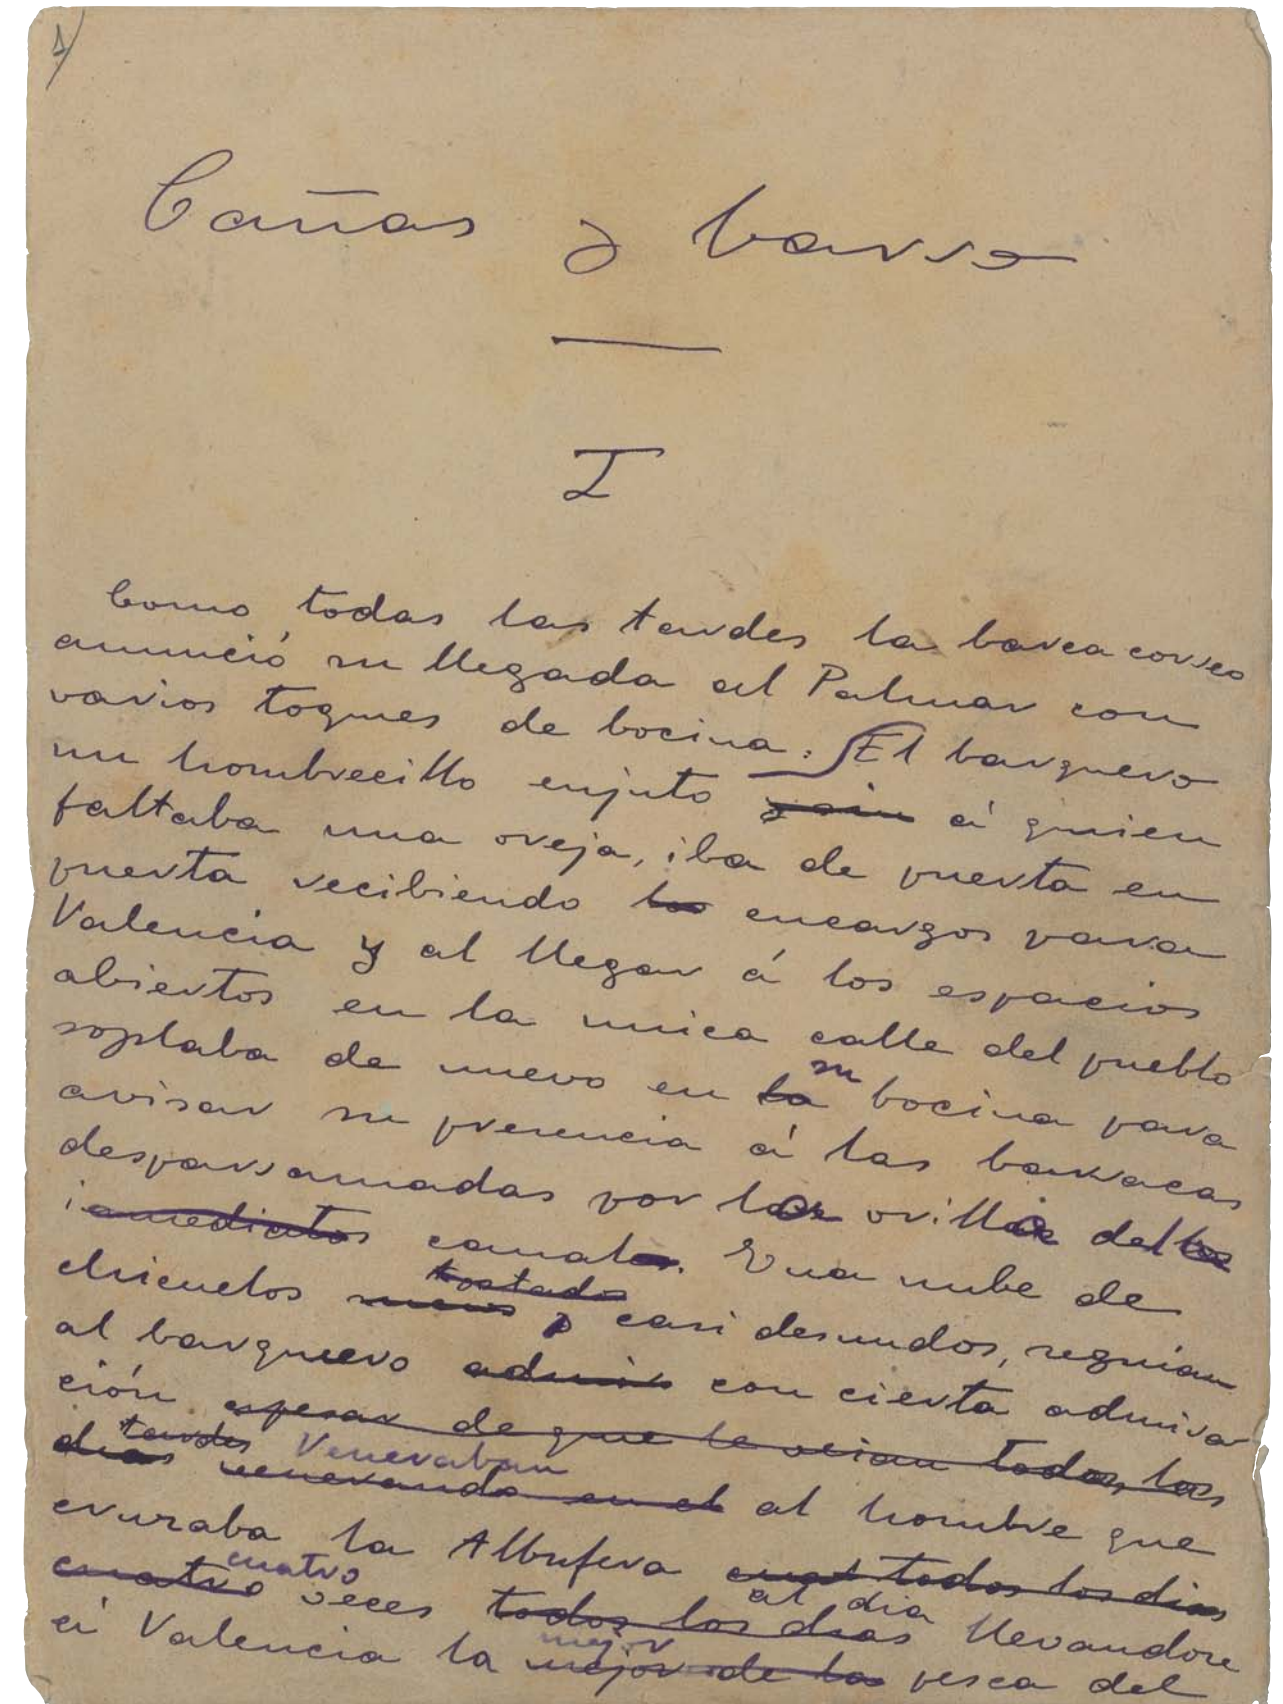 1)
Cañas y barro
I
Como todas las tardes la barca correo
anunció su llegada al Palmar con
varios toques de bocina. El barquero
un hombrecillo enjuto y sin á quien
faltaba una oreja, iba de puerta en
puerta recibiendo los encargos para
Valencia y al llegar á los espacios
abiertos en la unica calle del pueblo
su
soplaba de nuevo en la bocina para
avisar su presencia á las barracas
desparramadas por las orillas del
inmediatos canal. Una nube de
tostados
chicuelos y casi desnudos, seguian
al barquero admir con cierta admira
ción apesar de que le veian todas las
tardes Veneraban
dias venerando en el al hombre que
cruzaba la Albufera todos los dias
cuatro al dia
cuatro veces todos los dias llevandose
mejor
á Valencia la mejor de la pesca del